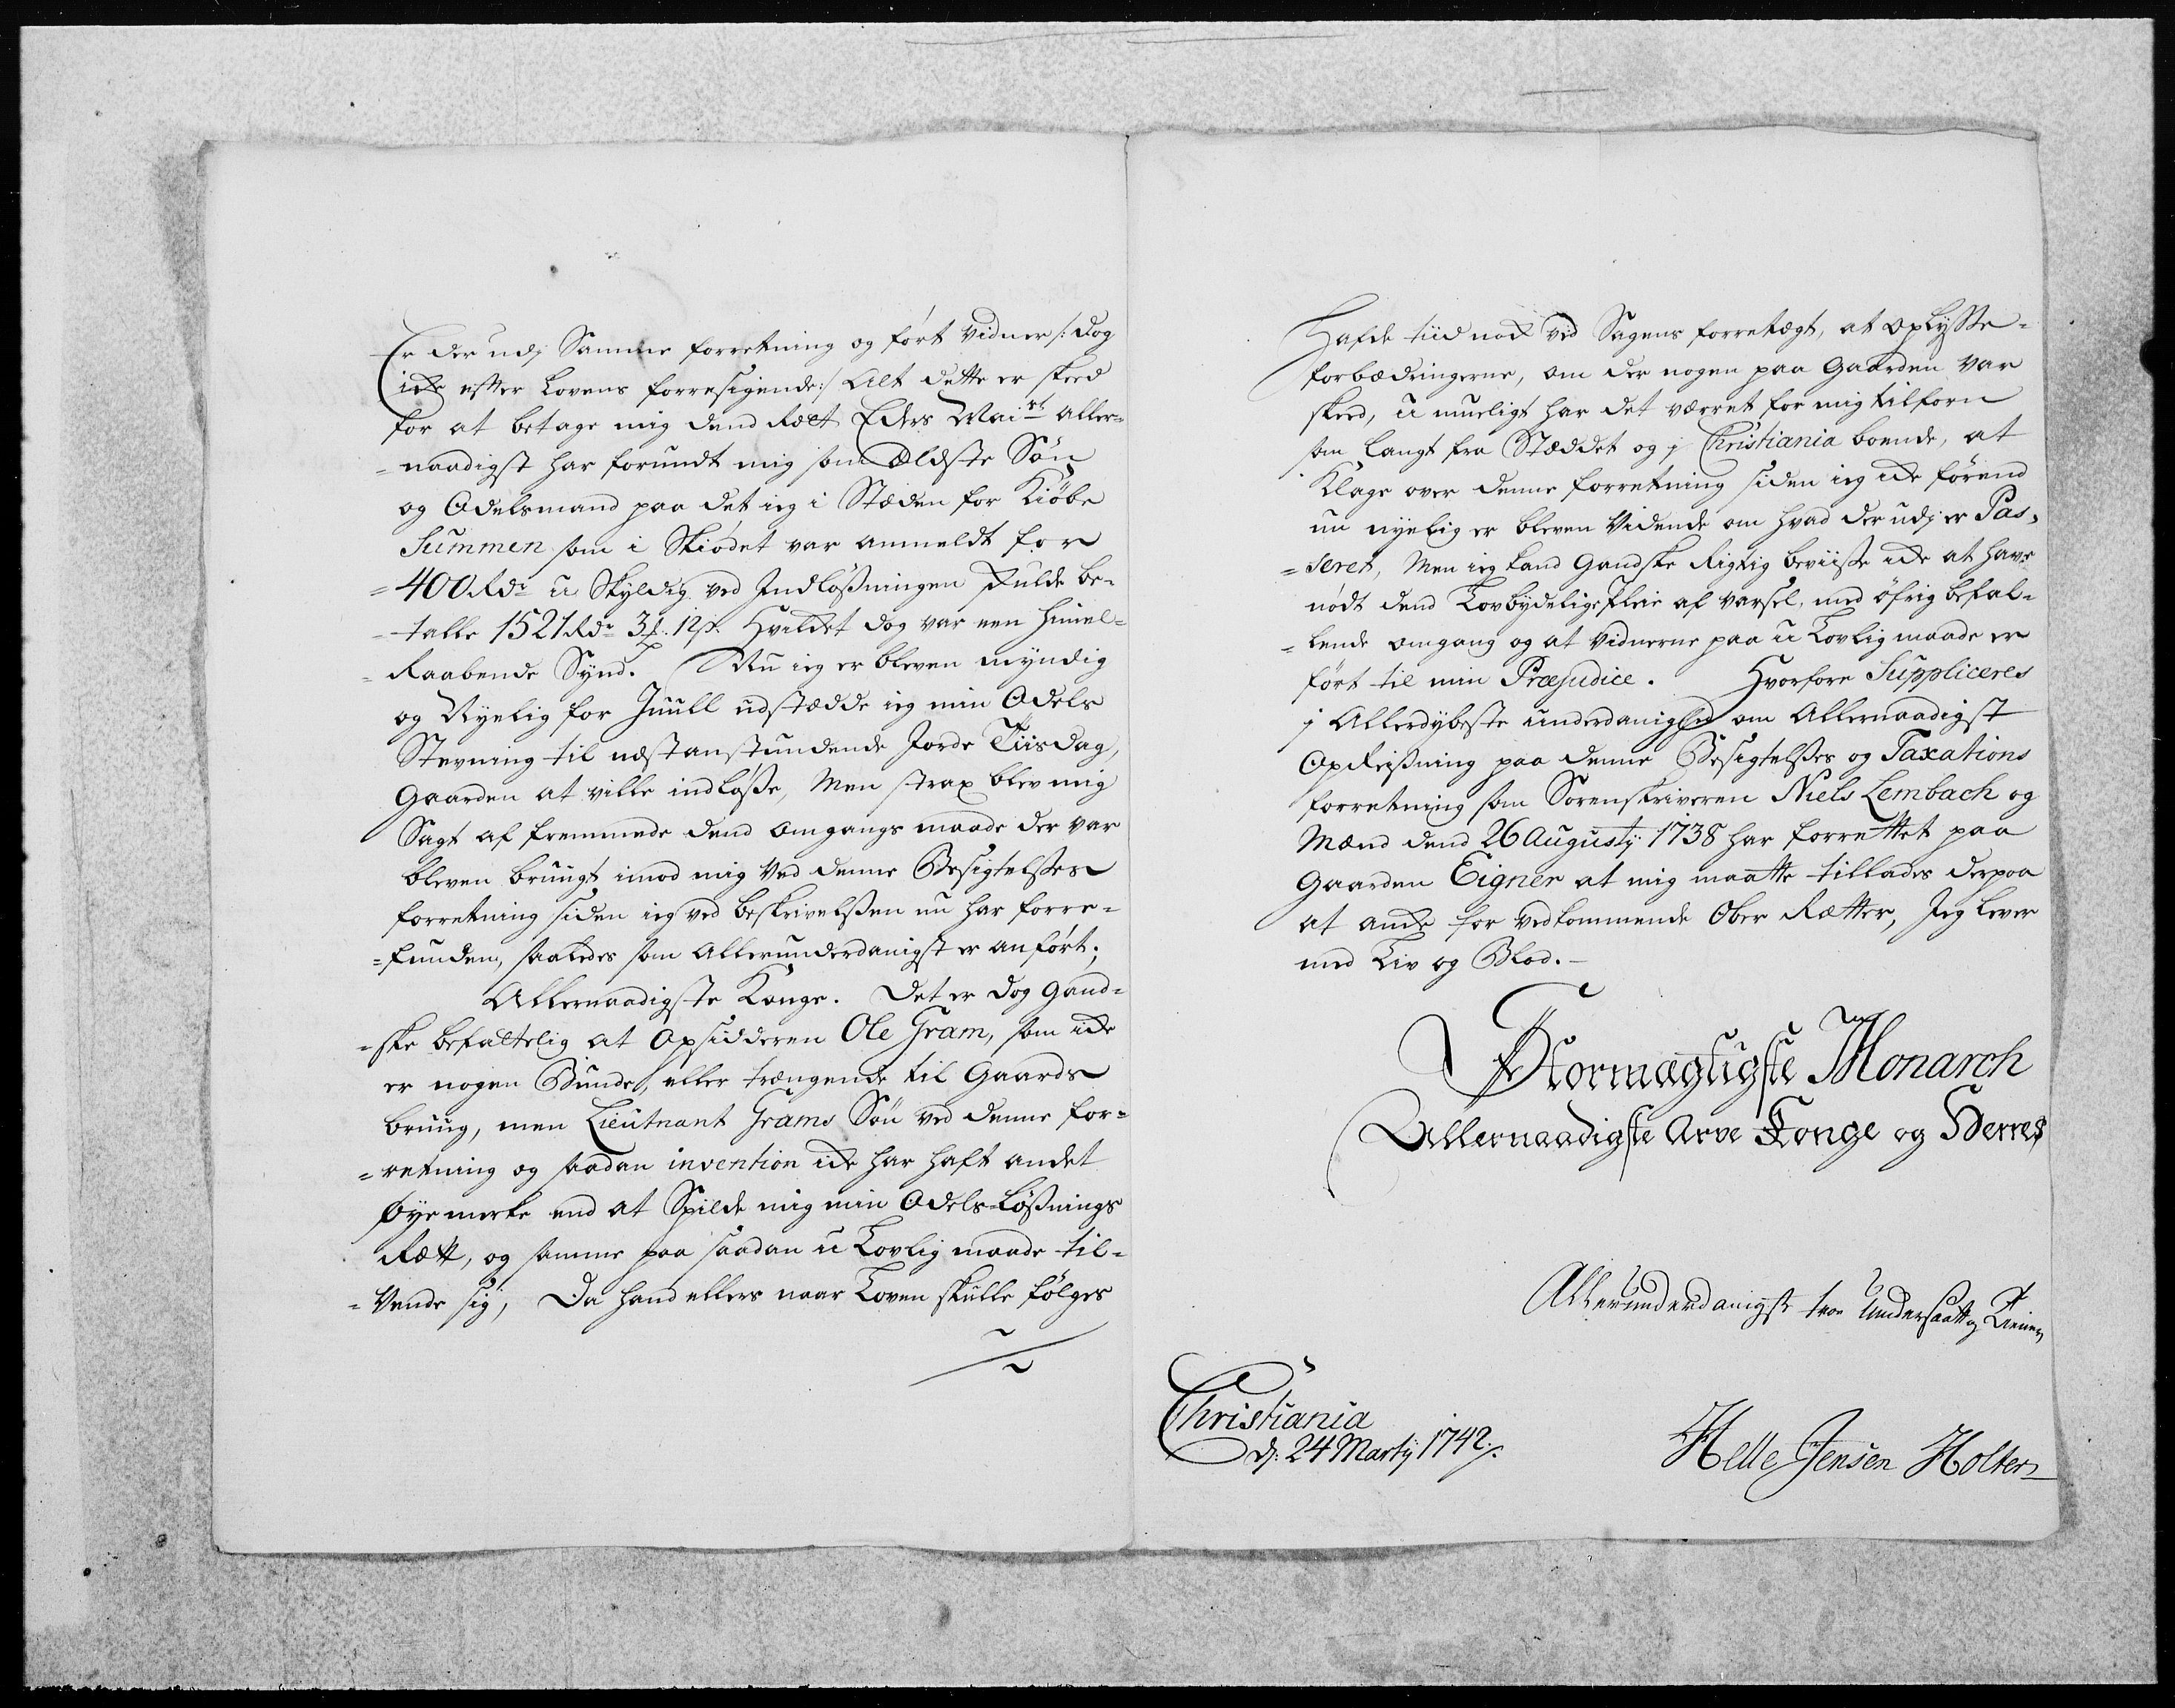 Er der udj Samme forretning og ført Vidner /: dog
icke efter Lovens forresigende :/ Alt dette er skeed
for at betage mig dend Rætt Eders Mai:st aller=
=naadigst har forundt mig som Ældste Søn
og Odelsmand paa det ieg i Stæden for Kiøbe
Summen som i Skiødet var anmeldt for
=400 Rdr u Skyldig ved Indløsningen skulde be=
=talle 1521 Rdr 3 . 12 s. hvilket dog var een himel=
=Raabende Synd. Nu ieg er bleven myndig
og Nyelig for Juull udstædde ieg min Odels
Stevning til næstanstundende Jorde Tiisdag,
Gaarden at ville indløsse, Men strax blev mig
Sagt af fremmede dend omgangs maade der var
bleven bruugt imod mig ved denne Besigtelsses
forretning siden ieg ved beskrivelssen nu har forre=
=funden, saaledes som Allerunderdanigst er anført;
Allernaadigste Konge. Det er dog Gand=
=ske befattelig at Opsidderen Ole Gram, som icke
er nogen Bunde, eller trængende til Gaards
bruug, men Lieutnant Grams Søn ved denne for=
=retning og saadan invention icke har haft andet
øyemerke end at Spilde mig min Odels-Løssnings
Rætt, og samme paa saadan u Lovlig maade til=
=Vende sig, Da hand ellers naar Loven skulle følges
Hafde tiid nock ved Sagens forretægt, at oplysse=
forbædringerne, om der nogen paa Gaarden var
skeed, u mueligt har det værret for mig tilforn
som langt fra Stæddet og j Christiania boende, at
Klage over denne forretning siden ieg icke førend
nu nyelig er bleven Vidende om hvad der udj er Pas=
=seret, Men ieg kand Gandske Rigtig beviisse icke at have
nødt dend Lovbydelige Pleie af varsel, med øfrig befal=
=lende omgang og at vidnerne paa u Lovlig maade er
ført til min Præjudice. Hvorfore Suppliceres
j Allerdybeste underdanighed om Allernaadigst
Opreissning paa denne Besigtelsses og Taxations
forretning som Sorenskriveren Niels Lembach og
Mænd dend 26 Augusty 1738 har forrettet paa
Gaarden Eigner at mig maatte tillades derpaa
at ancke for vedkommende Ober Rætter, Jeg lever
med Liv og Blod.
Stormægtigste Monarch
Allernaadigste Arve Konge og Herres
Allerunderdanigste troe Undersaatt og Tiener
Christiania
d: 24 Marty 1742
Helle Jensen Holter